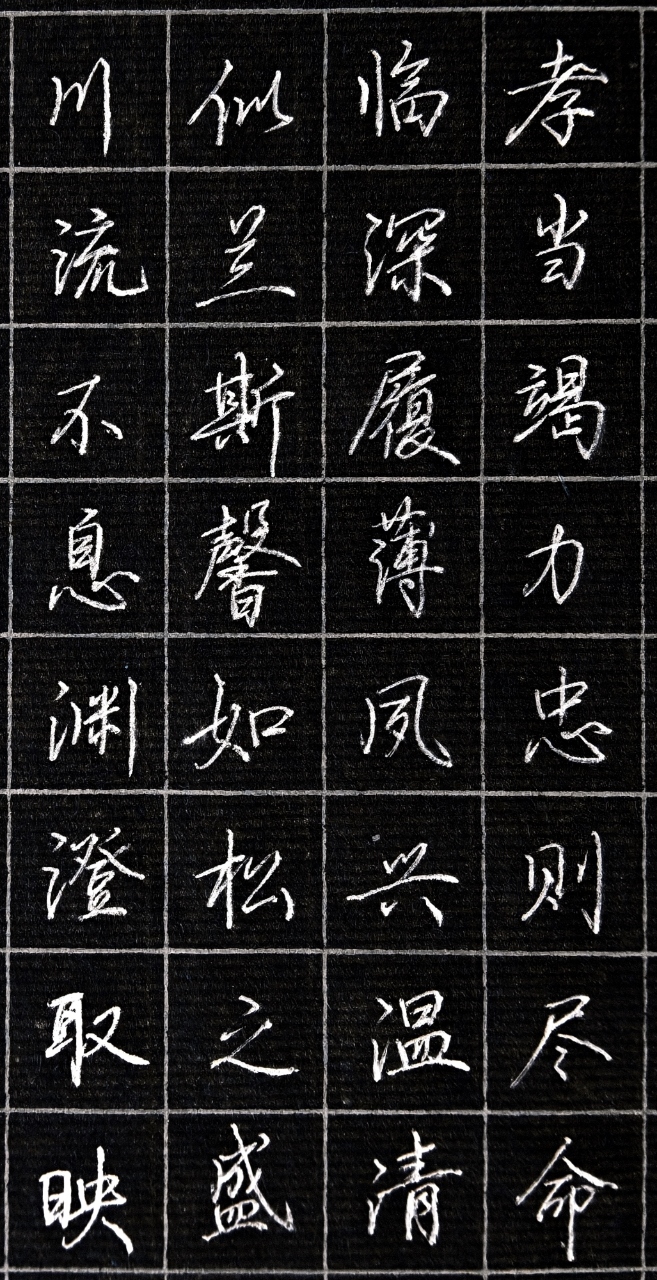 孝当竭力忠则尽命
临深履薄夙兴温清
似兰斯馨如松之盛
川流不息渊澄取映